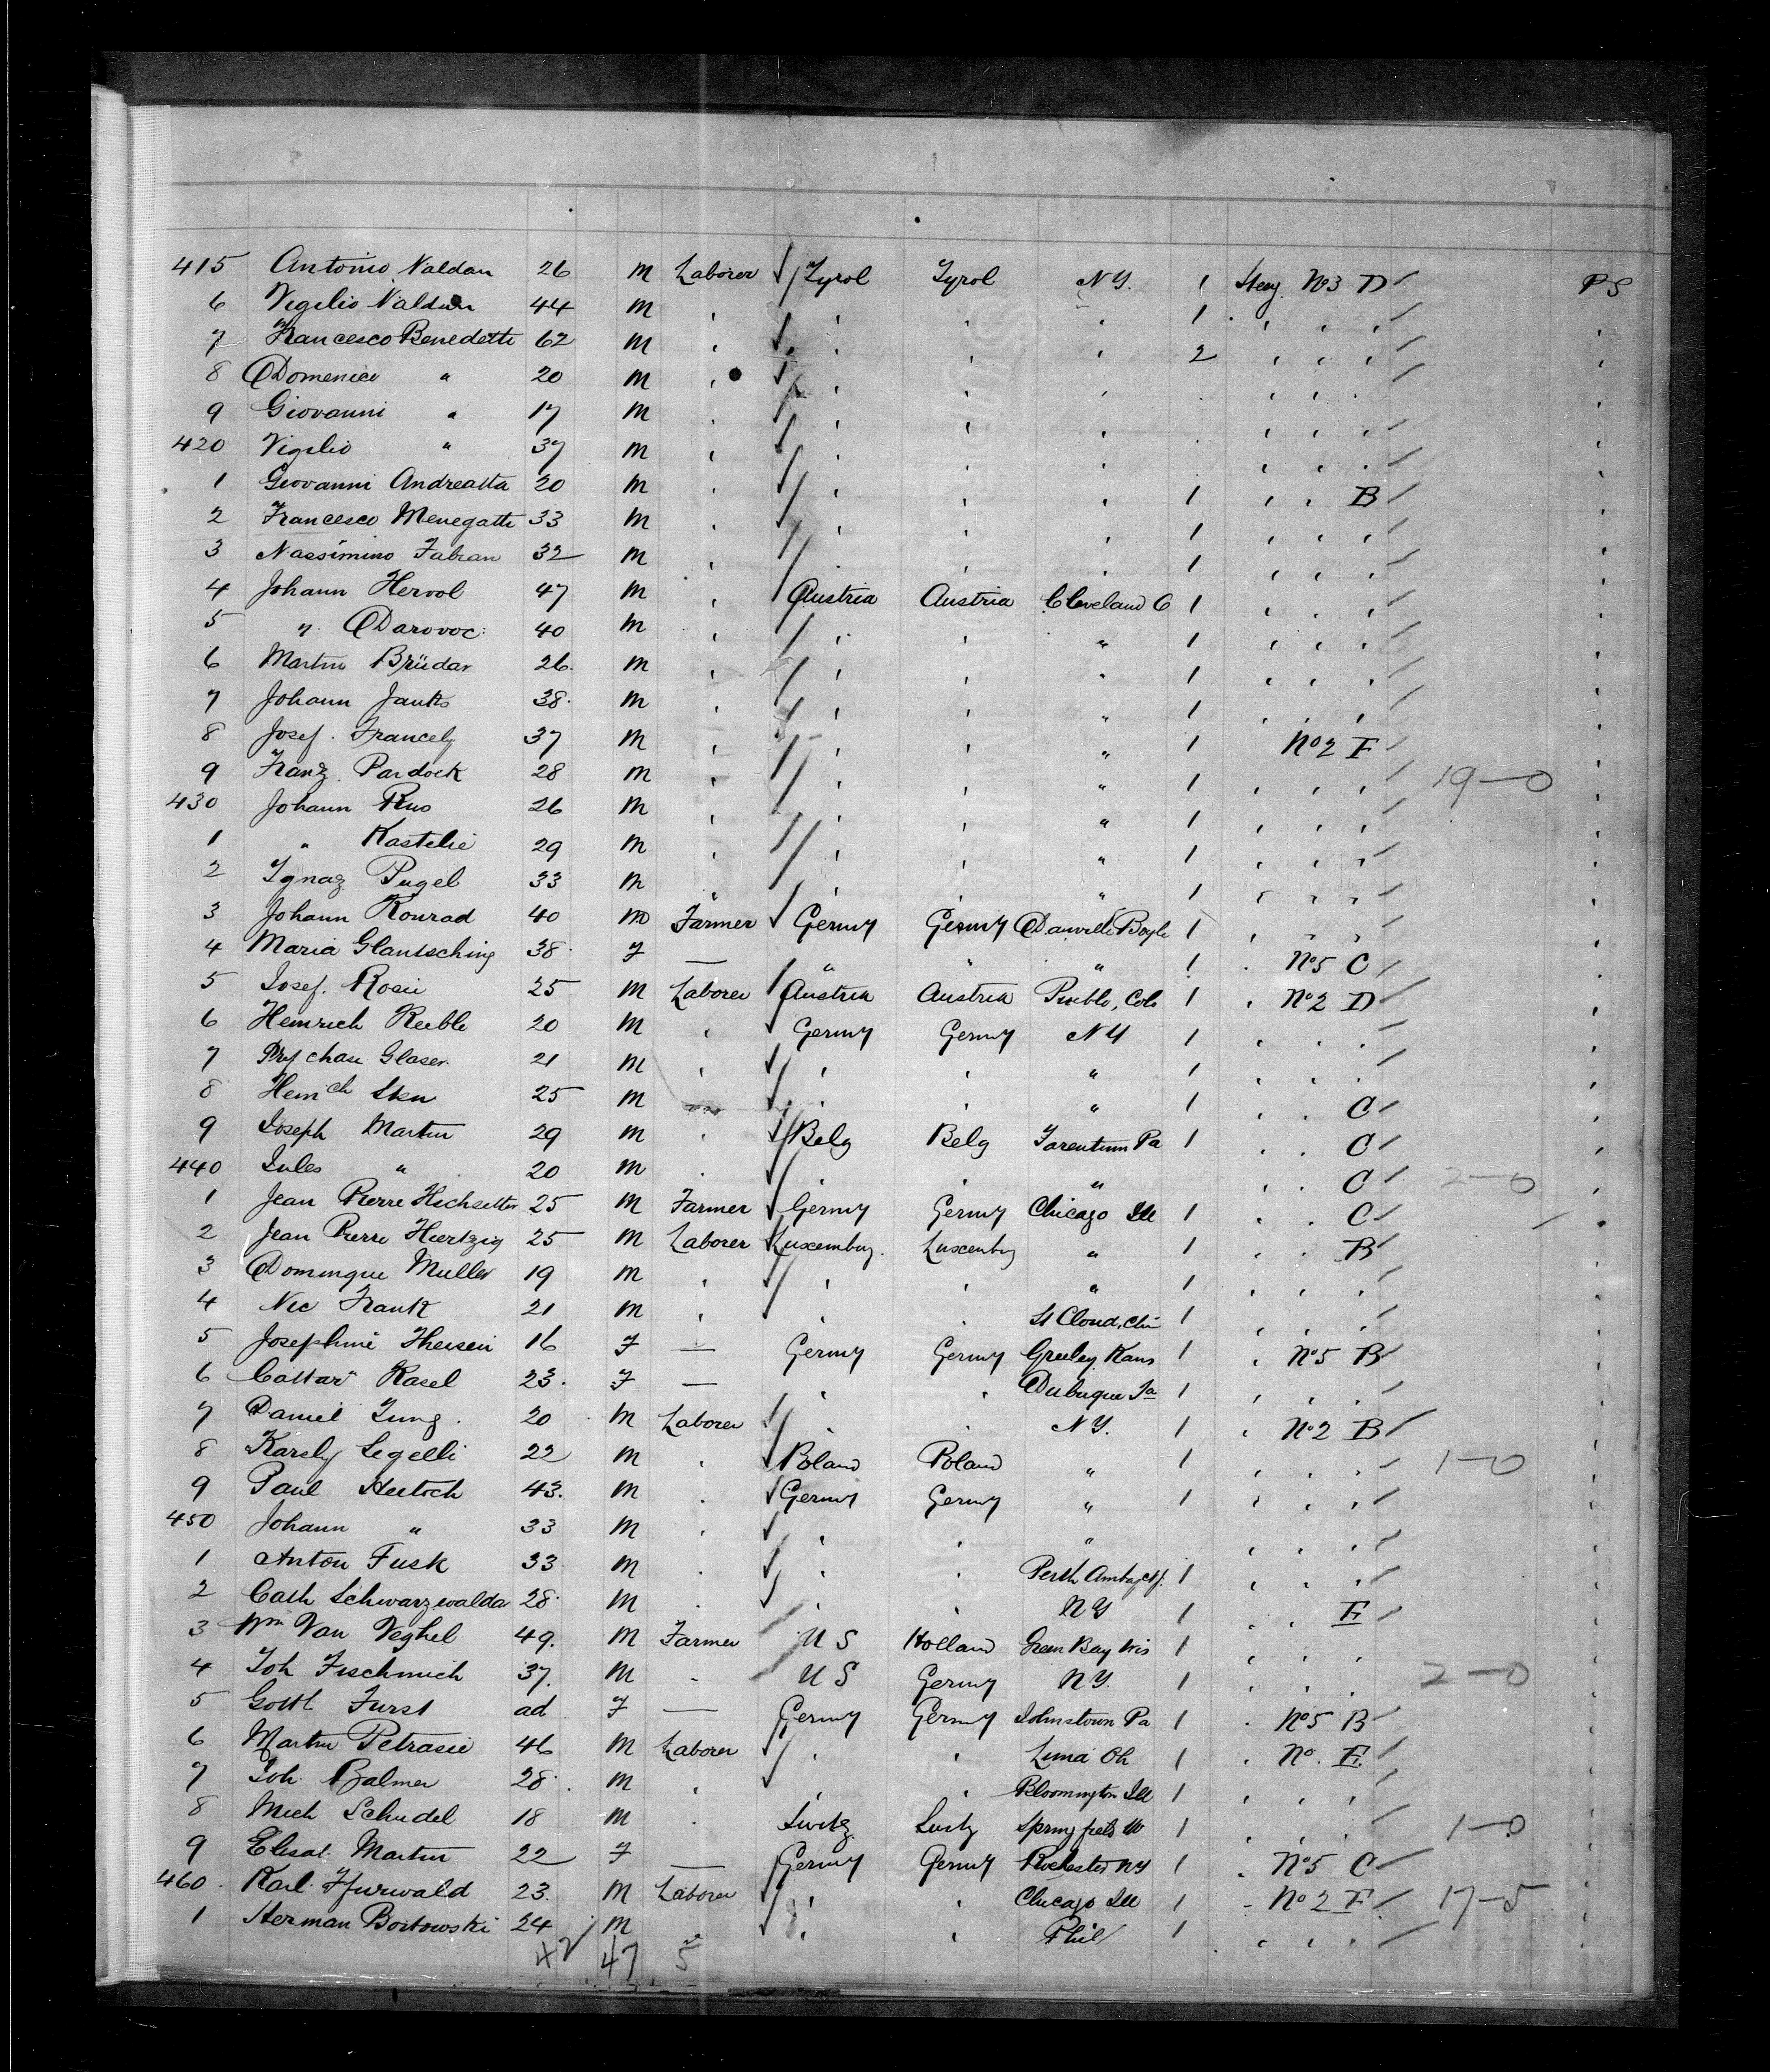 415 Antonio Valdan 26 M Laborer Tyrol Tyrol N.Y. 1 Steerg. No 3 D P S
6 Vigilio Valdan 44 M " " " " 1 " " " "
7 Francesco Benedetti 62 M " " " " 2 " " " "
8 Domenico " 20 M " " " " " " " "
9 Giovanni " 17 M " " " " " " " "
420 Vigilio " 37 M " " " " " " " "
1 Giovanni Andreatta 20 M " " " " 1 " " B "
2 Francesco Menegatti 33 M " " " " 1 " " " "
3 Massimino Fabian 32 M " " " " 1 " " " "
4 Johann Hervol 47 M " Austria Austria Cleveland O 1 " " " "
5 " Darovoc 40 M " " " " 1 " " " "
6 Martin Brüdar 26. M " " " " 1 " " " "
7 Johann 38. M " " " " 1 " " " "
8 Josef. 37 M " " " " 1 No 2 F "
9 Franz Pardock 28 M " " " " 1 " " " 19—0 "
430 Johann Rus 26 M " " " " 1 " " " "
1 " Kastelic 29 M " " " " 1 " " " "
2 Ignaz Pugel 33 M " " " " 1 " " " "
3 Johann Konrad 40 M Farmer Germy Germy Danville 1 " " " "
4 Maria 38. F — " " " 1 " No 5 C "
5 Josef. 25 M Laborer Austria Austria Pueblo, Colo 1 " No 2 D "
6 Heinrich Reeble 20 M " Germy Germy N Y 1 " " " "
7 Glaser 21 M " " " " 1 " " " "
8 Heinch 25 M " " " " 1 " " C "
9 Joseph Martin 29 M " Belg Belg Tarentum Pa 1 " " C "
440 Jules " 20 M " " " " " " C 2—0 "
1 Jean Pierre 25 M Farmer Germy Germy Chicago Ill 1 " " C "
2 Jean Pierre Hertzig 25 M Laborer Luxemburg. Luxemburg " 1 " " B "
3 Dominque Muller 19 M " " " " 1 " " " "
4 Nic Frank 21 M " " " St Cloud, 1 " " " "
5 Josephine Theisen 16 F — Germy Germy Greeley Kans 1 " No 5 B "
6 Rasel 23. F — " " Dubuque Ia 1 " " " "
7 Daniel Jung. 20 M Laborer " " N.Y. 1 " No 2 B "
8 Karoly Segelli 22 M " Poland Poland " 1 " " " 1—0 "
9 Paul 43. M " Germy Germy " 1 " " " "
450 Johann " 33 M " " " " " " " "
1 Anton Fusk 33 M " " " Perth Amboy NJ. 1 " " " "
2 Cath Schwarzwalda 28. M " " " N Y 1 " " E "
3 Wm Van Veghel 49. M Farmer U S Holland Green Bay Wis 1 " " " "
4 Joh Fischmich 37. M " U S Germy N.Y. 1 " " " 2—0 "
5 Gottl Furst ad F — Germy Germy Johnstown Pa 1 " No 5 B "
6 Martin Petrasic 46 M Laborer " " Lima Oh 1 " No. E. "
7 Joh. Balmer 28. M " " " Bloomington Ill 1 " " " "
8 Mich Schudel 18 M " Switz Switz 1 " " " 1—0 "
9 Elisat. Martin 22 F — Germy Germy Rochester NY 1 " No 5 C "
460. Karl. 23. M Laborer " " Chicago Ill 1 " No 2 F 17—5 "
1 Herman Bortowski 24 M " " Phil 1 " " " "
42 47 5